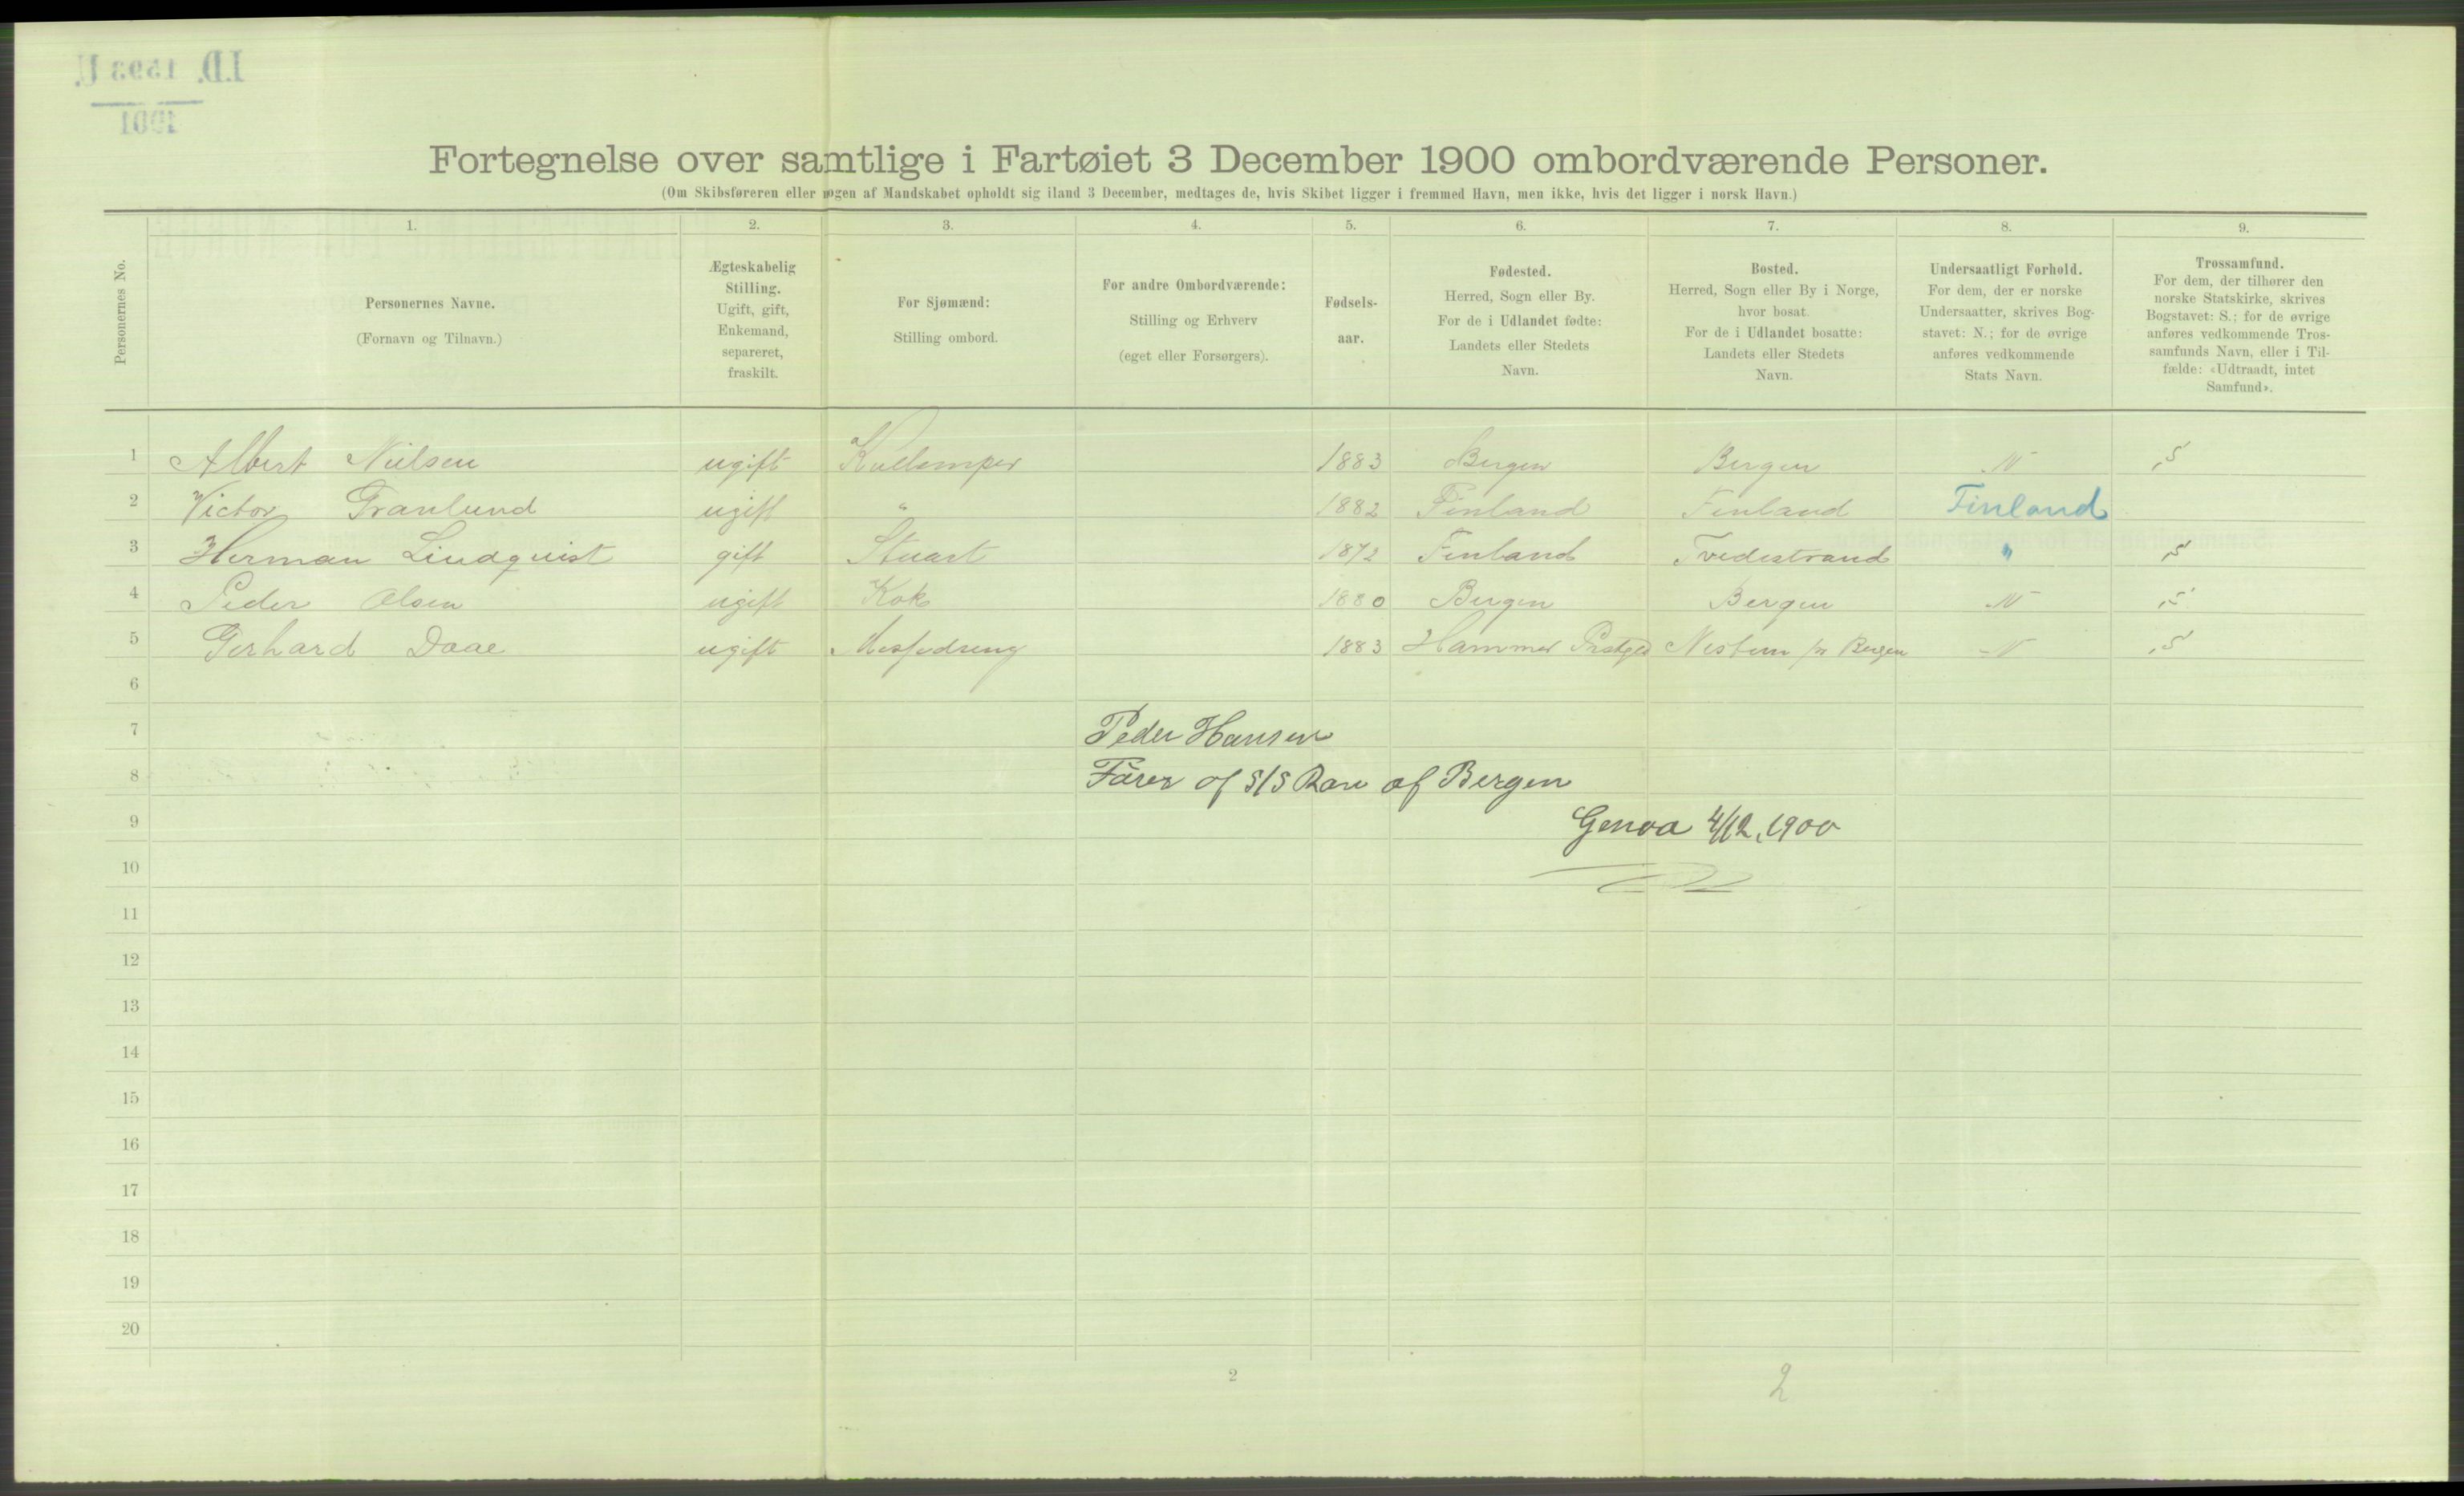 I.D. 1593 U.
1901
Fortegnelse over samtlige i Fartøiet 3 December 1900 ombordværende Personer.
(Om Skibsføreren eller nogen af Mandskabet opholdt sig iland 3 December, medtages de, hvis Skibet ligger i fremmed Havn, men ikke, hvis det ligger i norsk Havn.)
Personernes No.
1.
Personernes Navne.
(Fornavn og Tilnavn.)
2.
Ægteskabelig
Stilling.
Ugift, gift,
Enkemand,
separeret,
fraskilt.
3.
For Sjømænd:
Stilling ombord.
4.
For andre Ombordværende:
Stilling og Erhverv
(eget eller Forsørgers).
5.
Fødsels-
aar.
6.
Fødested.
Herred, Sogn eller By.
For de i Udlandet fødte:
Landets eller Stedets
Navn.
7.
Bosted.
Herred, Sogn eller By i Norge,
hvor bosat.
For de i Udlandet bosatte:
Landets eller Stedets
Navn.
8.
Undersaatligt Forhold.
For dem, der er norske
Undersaatter, skrives Bog-
stavet: N.; for de øvrige
anføres vedkommende
Stats Navn.
9.
Trossamfund.
For dem, der tilhører den
norske Statskirke, skrives
Bogstavet: S.; for de øvrige
anføres vedkommende Tros-
samfunds Navn, eller i Til-
fælde: «Udtraadt, intet
Samfund».
1 Albert Nielsen ugift Kullemper 1883 Bergen Bergen N S
2 Victor Granlund ugift " 1882 Finland Finland Finland
3 Herman Lindqvist gift Stuart 1872 Finland Tvedestrand " S
4 Peder Olsen ugift Kok 1880 Bergen Bergen N S
5 Gerhard Daae ugift Messedreng 1883 Hammer Nestun pr Bergen N S
6
7 Peder Hansen
8 Fører af S/S Ran af Bergen
9 Genoa 4/12. 1900
10
11
12
13
14
15
16
17
18
19
20
2
2